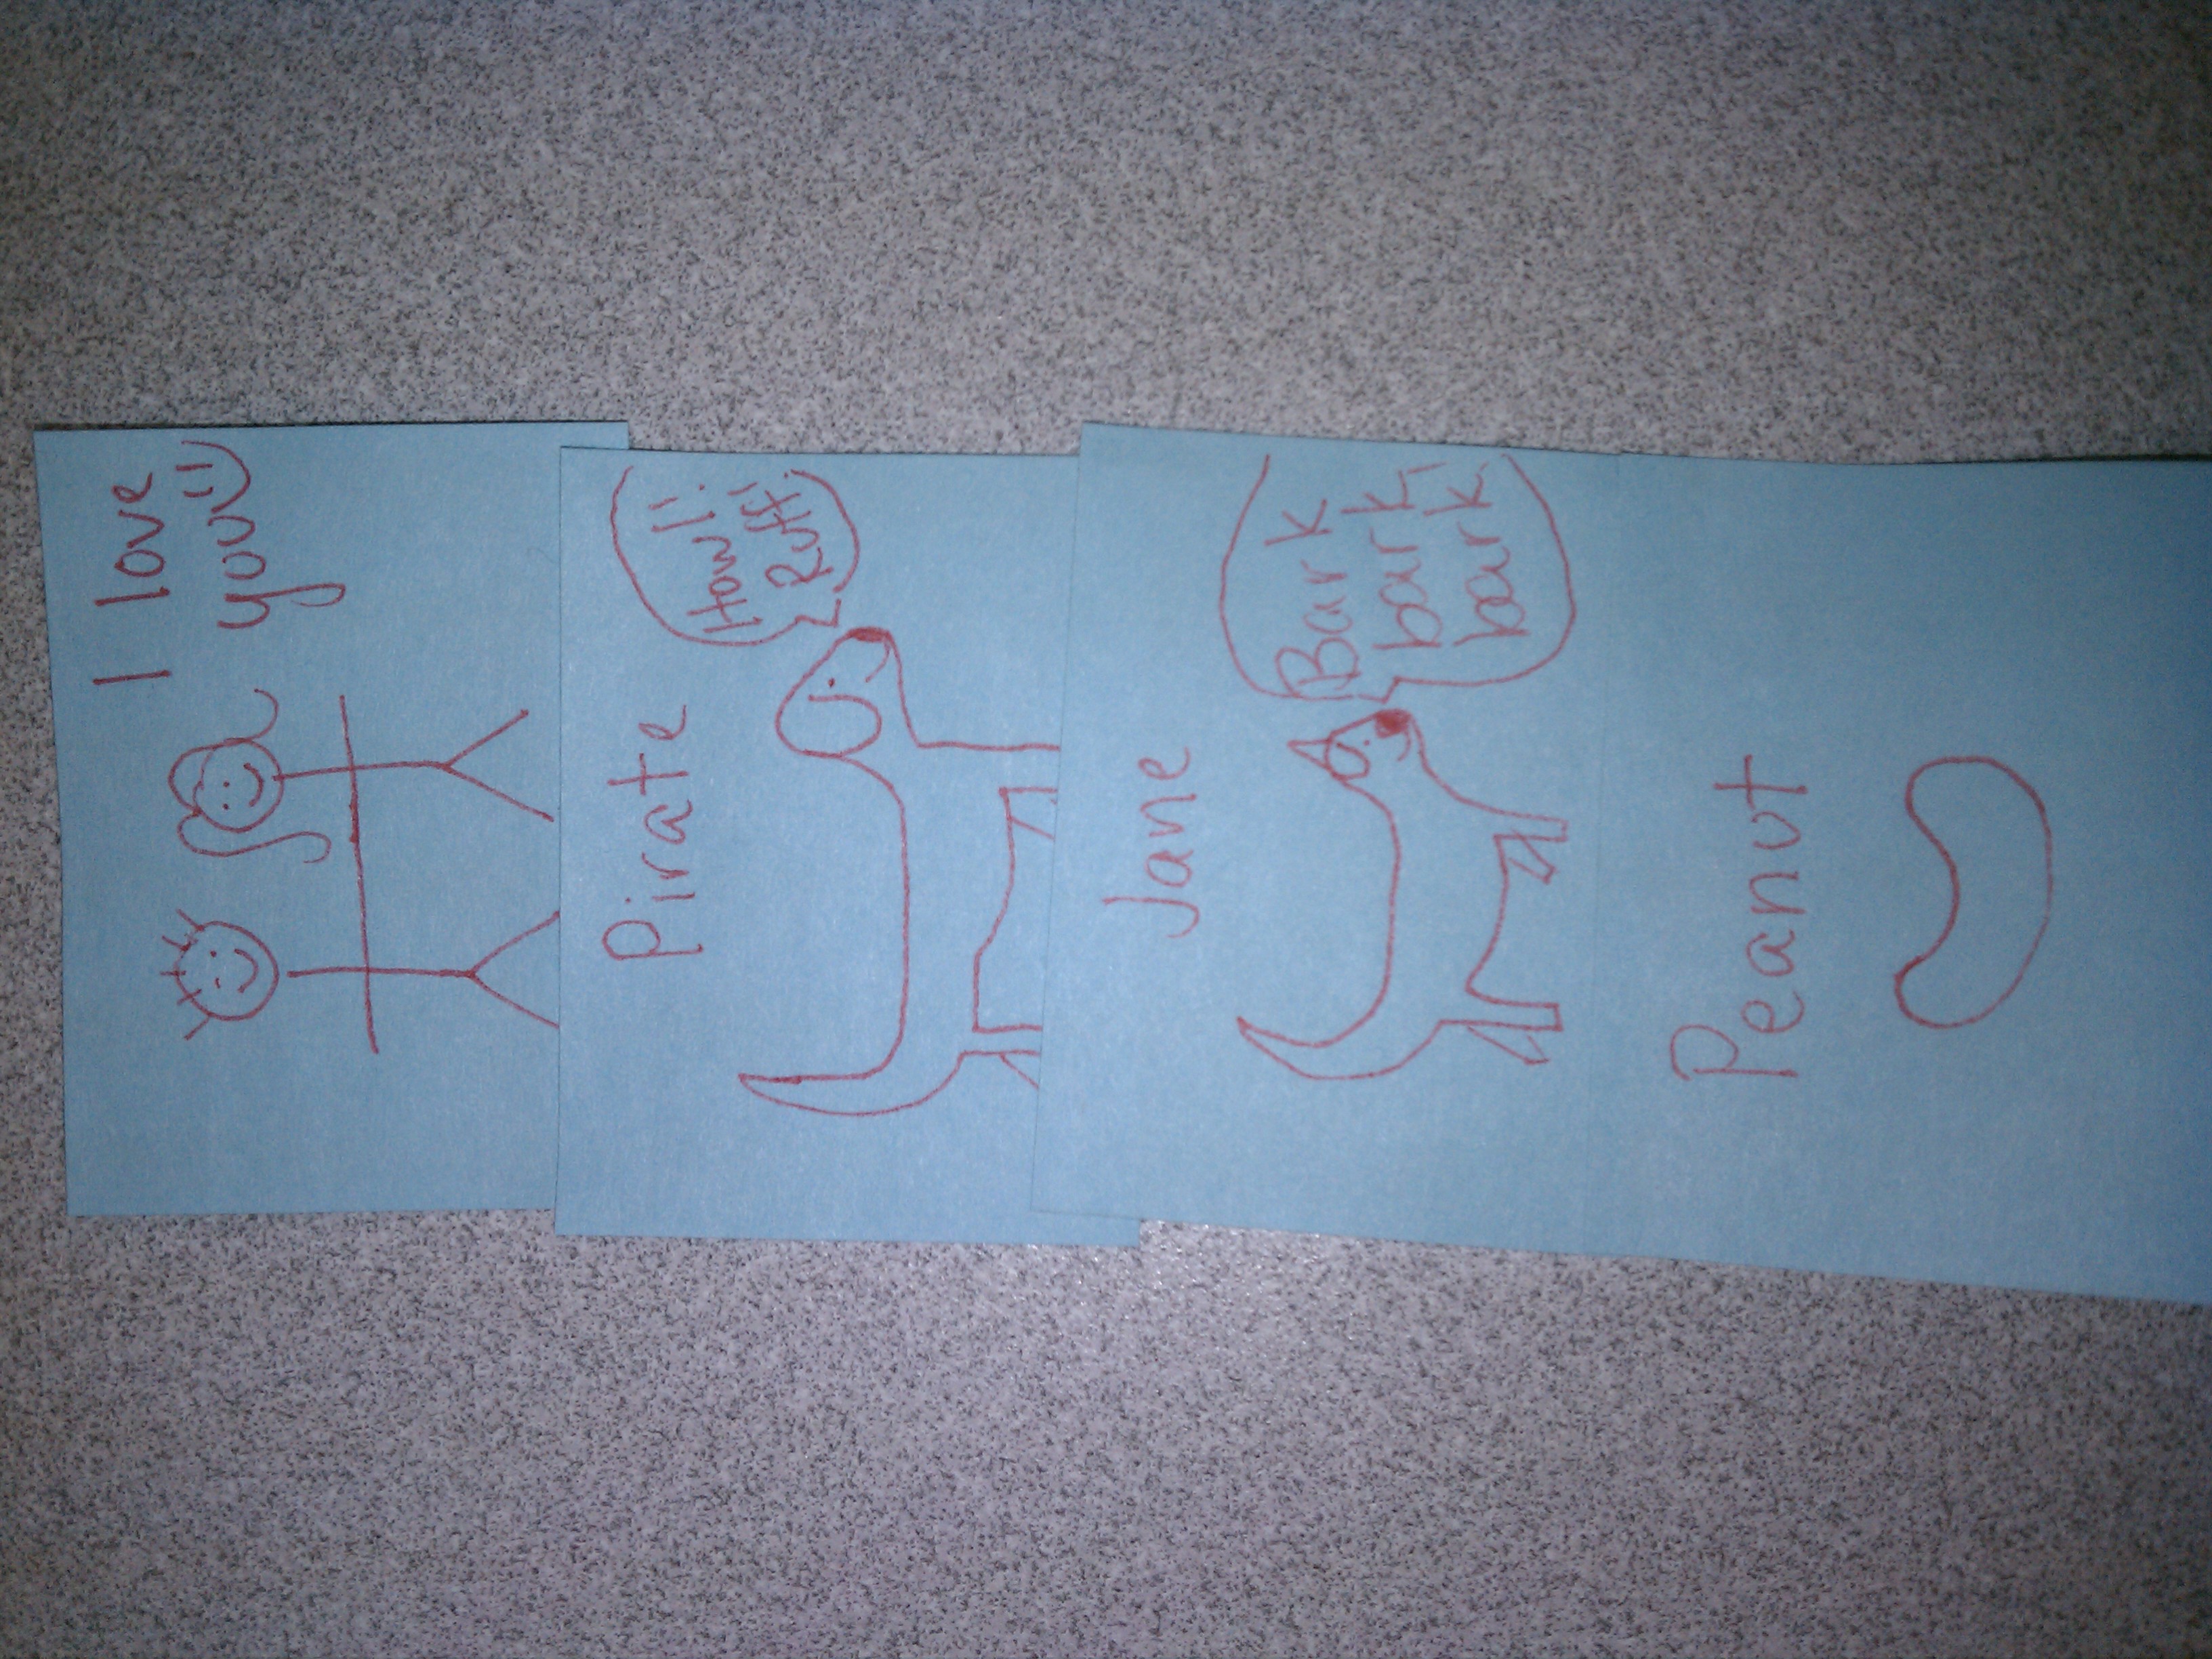 I love
you :)
Pirate
Howl!
Ruff!
Jane
Bark
bark
bark
Peanut